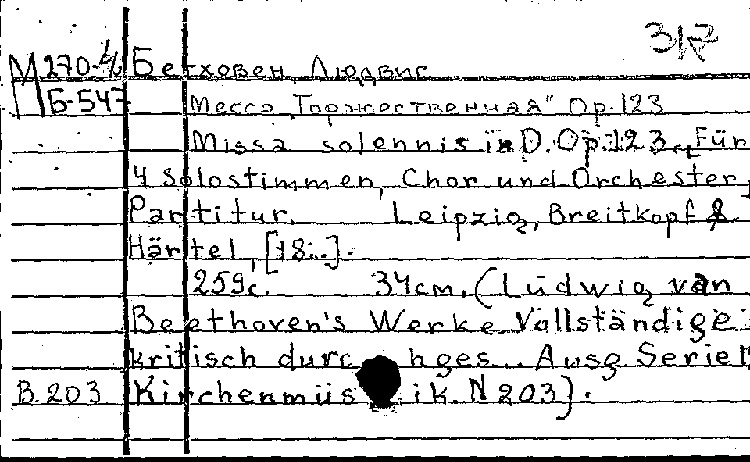 М 270-4/6 Бетховен, Людвиг
Б-547 Месса „Торжественная" Op.123
Missa solennis in D. Op.123. Für
4 Solostimmen, Chor und Orchester,
Partitur. Leipzig, Breitkopf &
Härtel, [18..].
259с. 34cm. (Ludwig van
Beethoven's Werke Vollständige
kritisch durchges.. Ausg Serie
В.203 Kirchenmüsik. N 203).